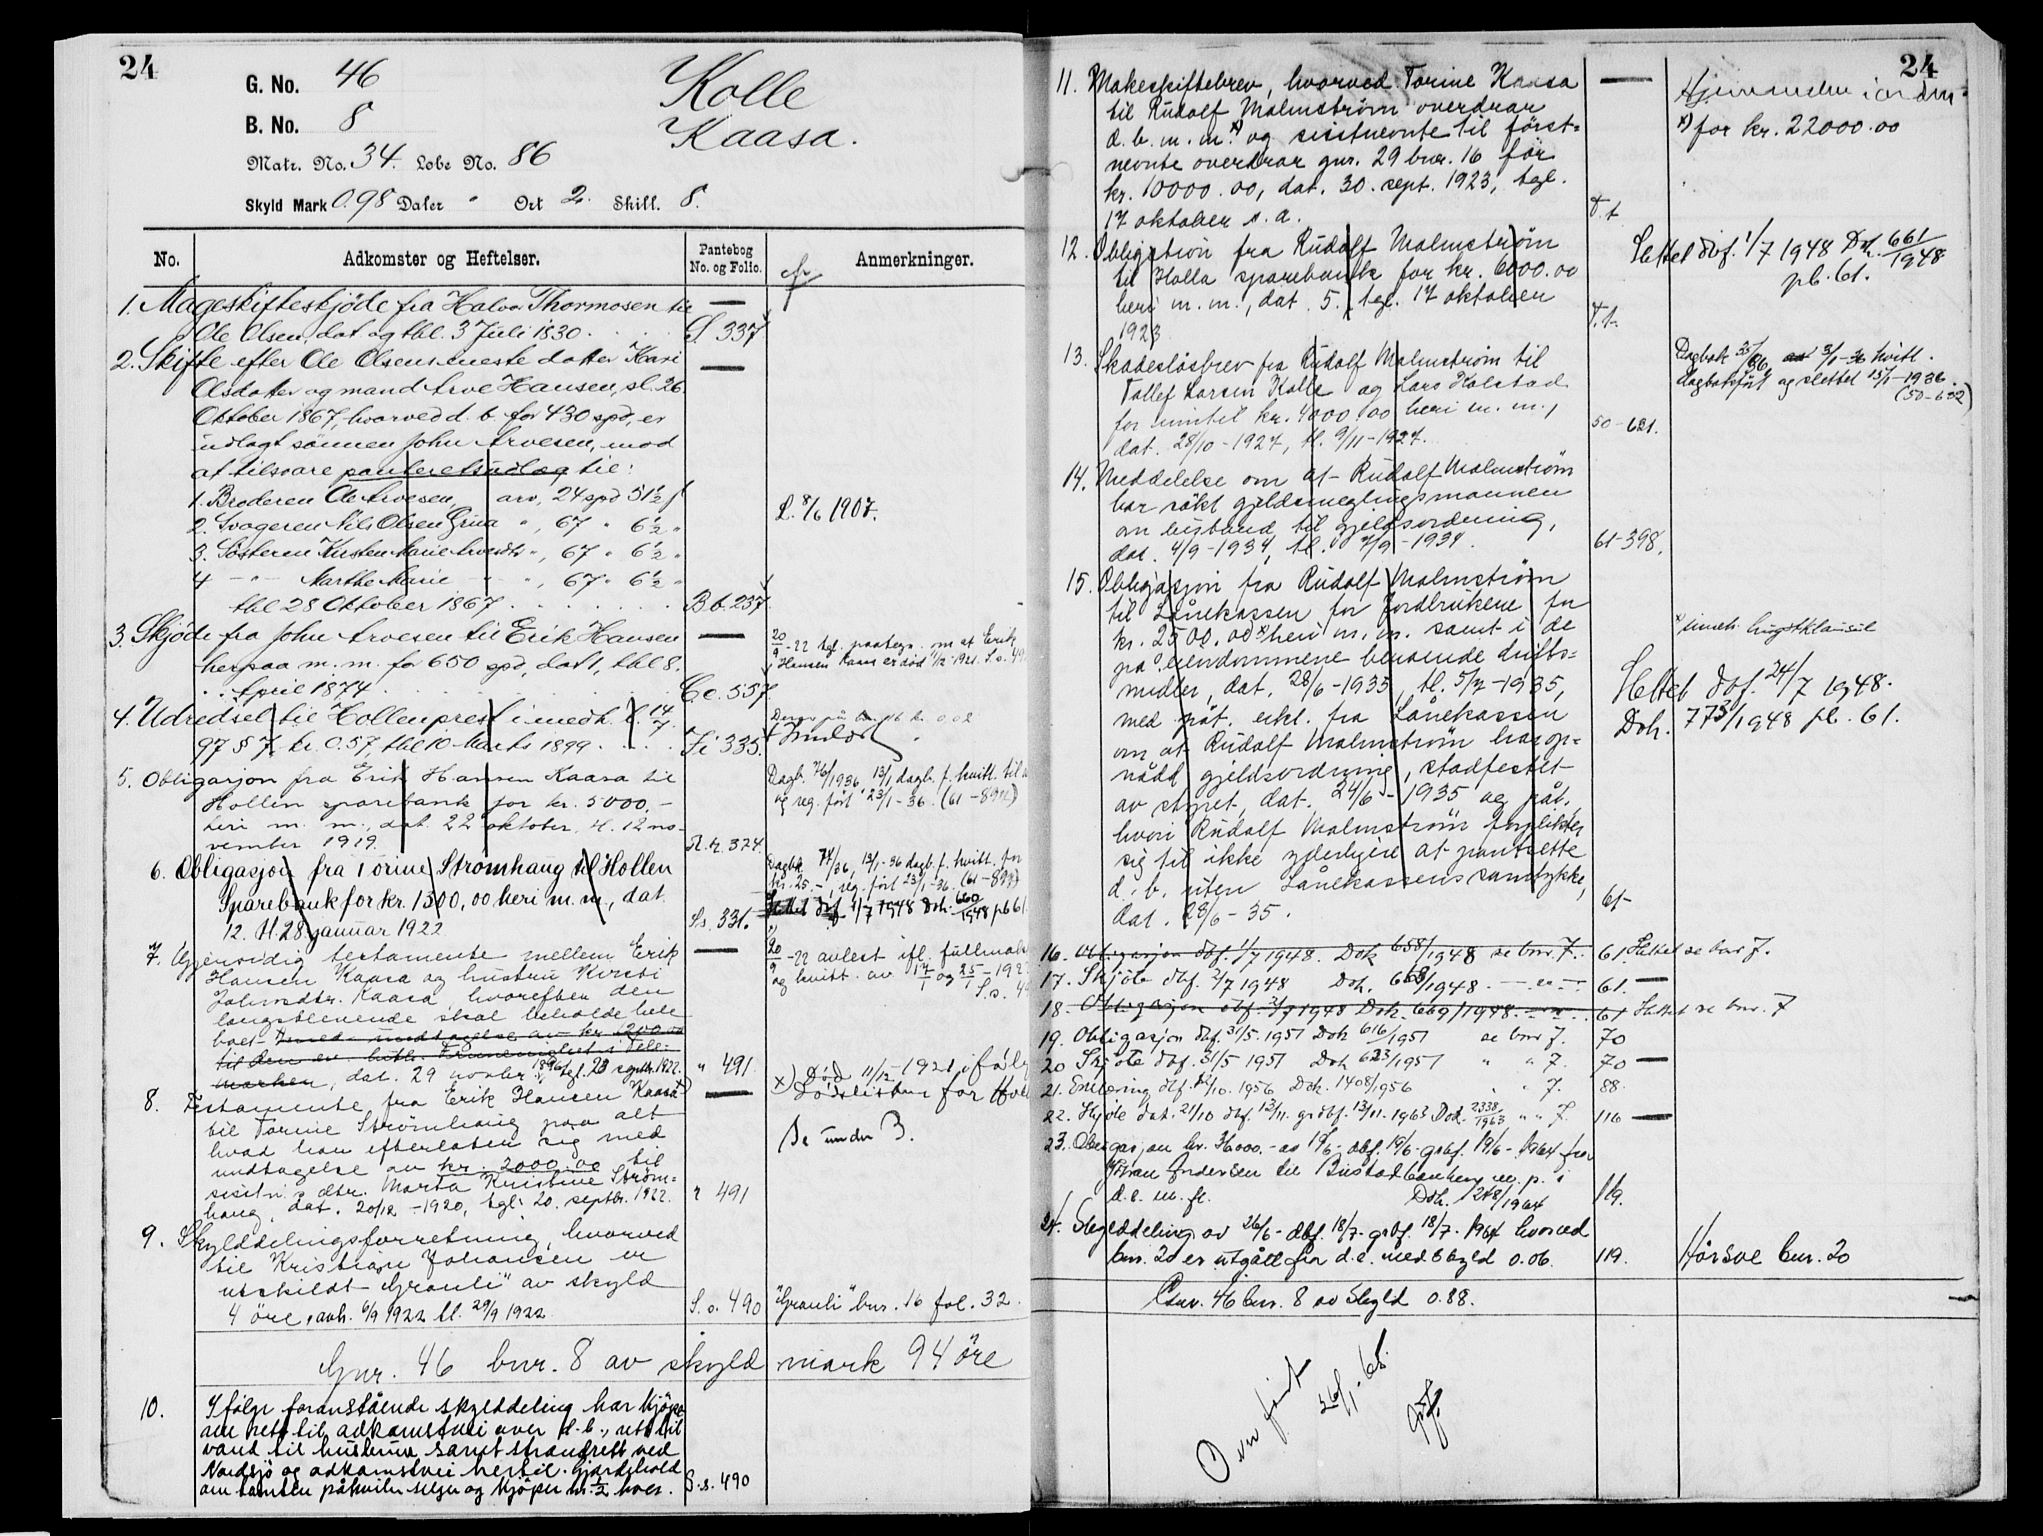 24
G. No. 46 Kolle
B. No. 8 Kaasa.
Matr. No. 34. Løbe No. 86
Skyld Mark 0.98 Daler " Ort 2. Skill. 8.
No. Adkomster og Heftelser. Pantebog No. og Folio. Anmerkninger.
1. Mageskifteskjöde fra Halvor Thormosen til
Ole Olsen, dat og thl. 3 Juli 1830. S. 337
2. Skifte efter Ole Olsens næste datter Kari
Olsdatter og mand Arve Hansen, sl. 26
Oktober 1867, hvorved d. b. for 430 spd, er
udlagt sönnen John Arvesen, mod
at tilsvare panteretsudlæg til:
1. Broderen Ole Arvesen, arv, 24 spd 51½ f
2. Svogeren Nils Olsen Grina " , 67 " 6½ " L. 8/6 1907.
3. Søsteren Kirsten Marie " , 67 " 6½ "
4 - " - Marthe Marie " , 67 " 6½ "
thl 28 Oktober 1867. B.b. 237
3. Skjöde fra John Arvesen til Erik Hansen
herpaa m. m. for 650 spd, dat 1, thl 8.
April 1874 C.c. 557
20/9-22 tgl. paategn. om at Erik
Hansen Kaasa er död 11/12-1921. S.s. 49
4. Udredsel til Hollen prest i medh. l. 14/7.
97 § 7. kr. 0.57, thl 10 Marts 1899. 335.
5. Obligasjon fra Erik Hansen Kaasa til
Hollen sparebank for kr. 5000.-
heri m. m., dat. 22 oktober, tl. 12 no-
vember 1919. R.r. 374.
Dagb. 76/1936, 13/1 dagb. f. kvitt. til
og reg. ført 23/1-36. (61-894)
6. Obligasjon fra Torine Strømhaug til Hollen
Sparebank for kr. 1500,00 heri m. m., dat
12. tl. 28 januar 1922 S.s. 331.
Dagbk. 74/36, 13/1-36 dagb. f. kvitt. for
kr. 25.-, reg. ført 23/1-36. (61-894)
Slettet dbf. 1/7 1948 Dok. 660/1948 pb 61.
7. Gjensidig testamente mellem Erik
Hansen Kaasa og hustru Kirsti
Johnsdtr. Kaasa, hvorefter den
længstlevende skal beholde hele
boet med undtagelse av kr. 200.00
til den ev. luth. Kinamisjon i Tele-
marken, dat. 29 novbr. 1896, tgl. 20 septbr. 1922. " 491
20/9-22 avlest ifl. fullmakt
og kvitt. av 17/1 og 25/1-192
S.s. 49
x) Död 11/12-1921 ifölge
Dödslisten for Holl
8. Testamente fra Erik Hansen Kaasa
til Torine Strømhaug paa alt
hvad han efterlater sig med
undtagelse av kr. 2000.00 til
sisstn.s dtr. Marta Kristine Strøm-
haug, dat. 20/12-1920, tgl. 20. septbr. 1922. " 491
Se under 3.
9. Skylddelingsforretning, hvorved
til Kristian Johansen er
utskildt "Granli" av skyld
4 öre, avh. 6/9 1922 tl. 29/9 1922. S.s. 490 "Granli" bnr. 16 fol. 32.
Gnr. 46 bnr. 8 av skyld mark 94 öre
10. Ifölge foranstående skylddeling har kjöpe
ren rett til adkomstvei over d. b., rett til
vand til husbruk samt strandrett ved
Nordsjö og adkomstvei hertil. Gjerdehold
om tomten påhviler selger og kjöper m. ½ hver. S.s. 490
24
11. Makeskiftebrev, hvorved Torine Kaasa
til Rudolf Malmström overdrar
d. b. m. m. x) og sisstnevnte til först-
nevnte overdrar gnr. 29 bnr. 16 for
kr. 10000.00, dat. 30. sept. 1923, tgl.
17 oktober s. a. T.t
x) for kr. 22000.00
12. Obligation fra Rudolf Malmström
til Holla sparebank for kr. 6000.00
heri m. m., dat. 5., tgl. 17 oktober
1923 T.t.
Slettet dbf. 1/7 1948 Dok. 661/1948
pb. 61.
13. Skadeslösbrev fra Rudolf Malmström til
Tollef Larsen Kolle og Lars Kolstad
for inntil kr. 4000.00 heri m. m.,
dat. 28/10-1927, tl. 9/11-1927. 50-621.
Dagbok 35/36, 3/1-36 kvitt.
dagbokfört og slettet 15/1-1936.
(50-622)
14. Meddelelse om at Rudolf Malmström
har sökt gjeldsmeglingsmannen
om bistand til gjeldsordning,
dat. 4/9-1934, tl. 7/9-1934. 61-398.
15. Obligasjon fra Rudolf Malmström
til Lånekassen for Jordbrukere for
kr. 2500.00 x) heri m. m. samt i de
på eiendommene beroende drifts-
midler, dat. 28/6-1935, tl. 5/7-1935,
med påt. erkl. fra Lånekassen
om at Rudolf Malmström har op-
nådd gjeldsordning, stadfestet
av styret, dat. 24/6-1935 og påt.
hvori Rudolf Malmström forplikter
sig til ikke yderligere at pantsette
d. b. uten Lånekassens samtykke,
dat. 28/6-35. 61-
x) hugstklausul
Slettet dbf. 24/7 1948.
Dok. 773/1948 pb. 61.
16. Obligasjon dbf. 1/7 1948. Dok 658/1948 se bnr 7. 61 Slettet se bnr 7.
17. Skjöte dbf. 2/7 1948 Dok. 668/1948 61.
18. Obligasjon dbf. 2/7 1948 Dok. 669/1948 61 Slettet se bnr. 7
19. Obligasjon dbf. 31/5 1951 Dok 616/1951 se bnr 7. 70
20 Skjöte dbf. 31/5 1951 Dok 623/1951 " " 7. 70
21. Erklæring dbf. /10. 1956 Dok. 1408/1956 " " 7. 88.
22. Skjøte dat. 21/10 dbf. 13/11. grbf. 13/11. 1963 Dok. 2338/1963 " " 7. 116
23. Obligasjon kr. 36000.- av /6- dbf. 19/6- grbf. 19/6- 1964 fra
Johan Andersen til Bustadbanken m. p. i
d. e. m. fl. Dok. 1248/1964 119.
24. Skylddeling av 26/6- dbf. 18/7- grbf. 18/7- 1964 hvorved
bnr. 20 er utgått fra d. e. med skyld 0.06. 119. bnr. 20
Gnr. 46 bnr. 8 av skyld 0.88.
Overført
26/1-65.